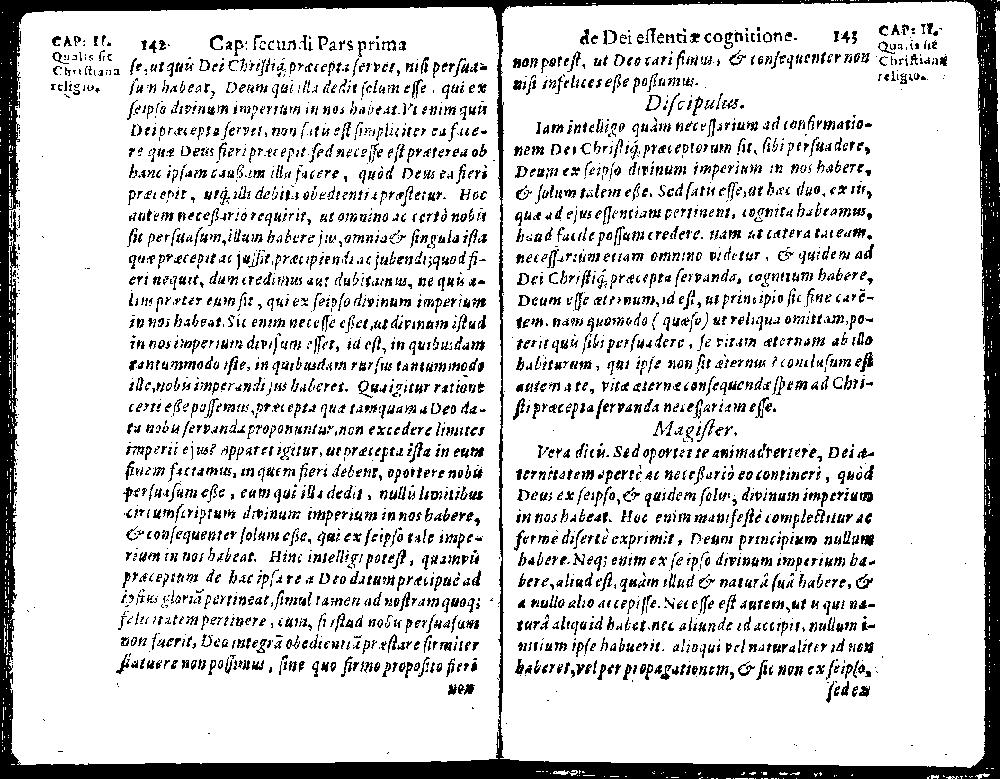 CAP: II.
Qualis sit
Christiana
religio.
142. Cap: secundi Pars prima
se, ut quis Dei Christiq; præcepta servet, nisi persua-
sum habeat, Deum qui illa dedit solum esse, qui ex
seipso divinum imperium in nos habeat. Vt enim quis
Dei præcepta servet, non satis est simpliciter ea face-
re quæ Deus fieri præcepit, sed necesse est præterea ob
hanc ipsam causam illa facere, quòd Deus ea fieri
præcepit, utq; illi debita obedientia præstetur. Hoc
autem necessariò requirit, ut omnino ac certò nobis
sit persuasum, illum habere jus, omnia & singula ista
quæ præcepit ac jussit, præcipiendi ac jubendi; quod fi-
eri nequit, dum credimus aut dubitamus, ne quis a-
lius præter eum sit, qui ex seipso divinum imperium
in nos habeat. Sic enim necesse esset, ut divinum istud
in nos imperium divisum esset, id est, in quibusdam
tantummodo iste, in quibusdam rursus tantummodo
ille, nobis imperandi jus haberet. Qua igitur ratione
certi esse possemus, præcepta quæ tamquam a Deo da-
ta nobis servanda proponuntur, non excedere limites
imperii ejus? Apparet igitur, ut præcepta ista in eum
finem faciamus, in quem fieri debent, oportere nobis
persuasum esse, eum qui illa dedit, nullis limitibus
circumscriptum divinum imperium in nos habere,
& consequenter solum esse, qui ex seipso tale impe-
rium in nos habeat. Hinc intelligi potest, quamvis
præceptum de hac ipsa re a Deo datum præcipuè ad
ipsius gloriã pertineat, simul tamen ad nostram quoq;
felicitatem pertinere, cum, si istud nobis persuasum
non fuerit, Deo integrã obedientiã præstare firmiter
statuere non possimus, sine quo firmo proposito fieri
non
de Dei essentiæ cognitione. 143
CAP: II.
Qualis sit
Christiana
religio.
non potest, ut Deo cari simus, & consequenter non
nisi infelices esse possumus.
Discipulus.
Iam intelligo quàm necessarium ad confirmatio-
nem Dei Christiq; præceptorum sit, sibi persuadere,
Deum ex seipso divinum imperium in nos habere,
& solum talem esse. Sed satis esse, ut hæc duo, ex iis,
quæ ad ejus essentiam pertinent, cognita habeamus,
haud facile possum credere. nam ut cætera taceam,
necessarium etiam omnino videtur, & quidem ad
Dei Christiq; præcepta servanda, cognitum habere,
Deum esse æternum, id est, ut principio sic fine carē-
tem. nam quomodo (quæso) ut reliqua omittam, po-
terit quis sibi persuadere, se vitam æternam ab illo
habiturum, qui ipse non sit æternus? conclusum est
autem a te, vitæ æternæ consequendæ spem ad Chri-
sti præcepta servanda necessariam esse.
Magister.
Vera dicis. Sed oportet te animadvertere, Dei æ-
ternitatem apertè ac necessariò eo contineri, quòd
Deus ex seipso, & quidem solus, divinum imperium
in nos habeat. Hoc enim manifestè complectitur ac
fermè disertè exprimit, Deum principium nullum
habere. Neq; enim ex seipso divinum imperium ha-
bere, aliud est, quàm illud & naturâ suâ habere, &
a nullo alio accepisse. Necesse est autem, ut is qui na-
turâ aliquid habet, nec aliunde id accipit, nullum i-
nitium ipse habuerit. alioqui vel naturaliter id non
haberet, vel per propagationem, & sic non ex seipso,
sed ex